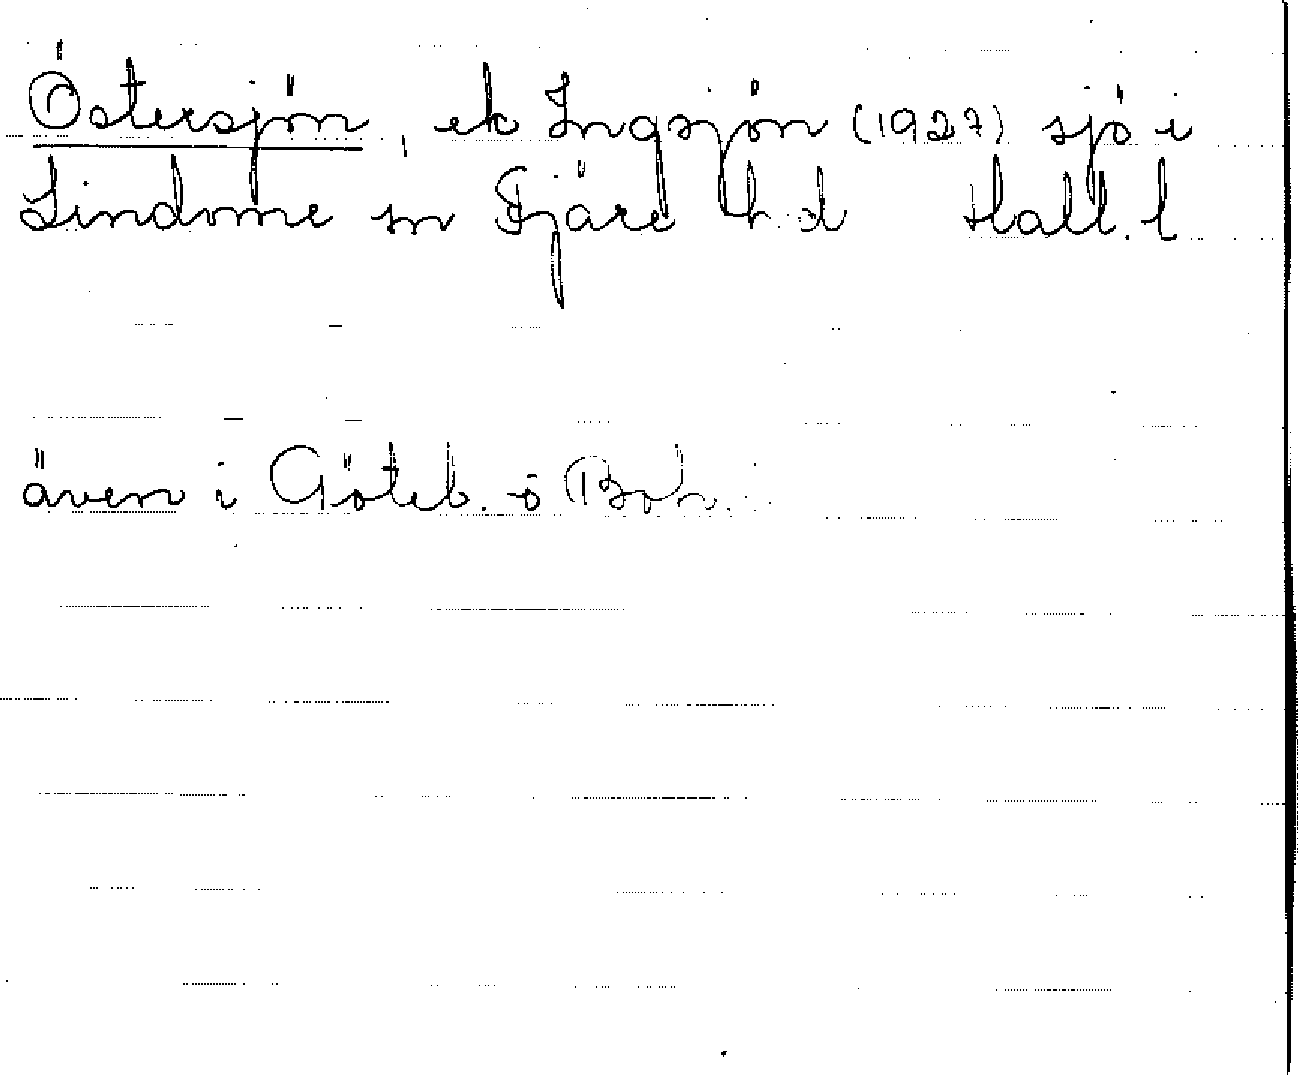 Östersjön, ek Ingsjön (1927) sjö i
Lindome sn Fjäre h.d Hall. l
även i Göteb. o Boh.